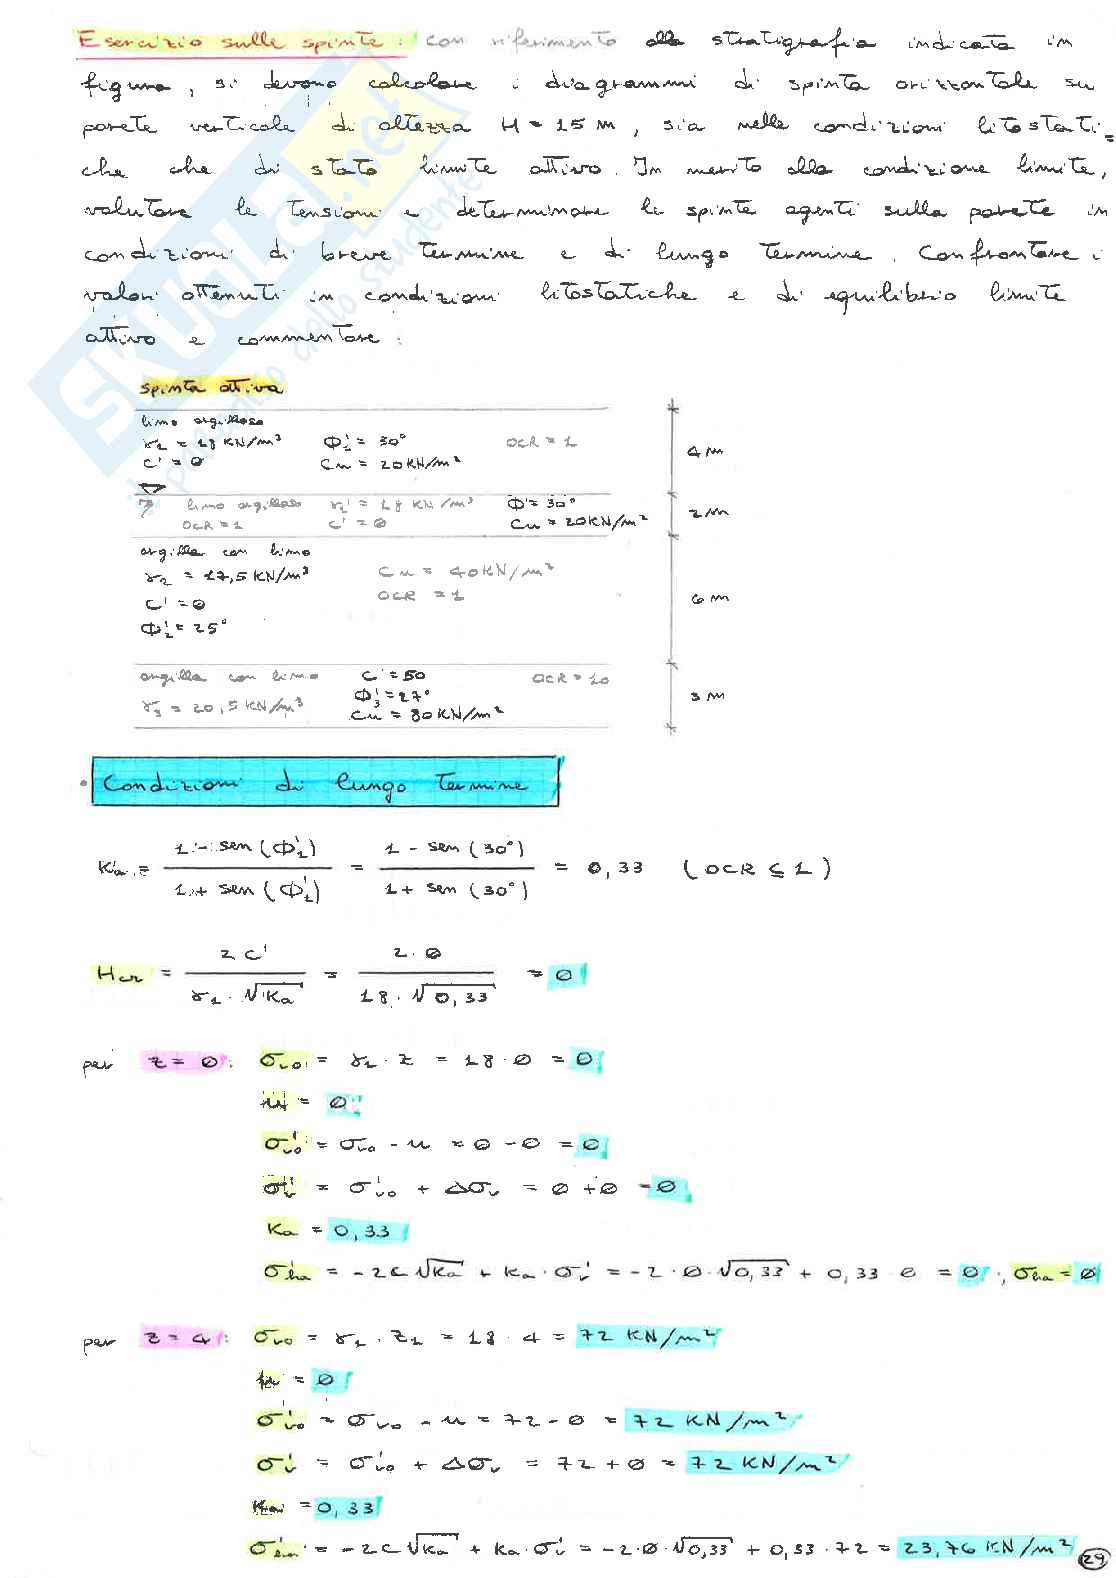 Esercizio sulle spinte : con riferimento alla stratigrafia indicata in
figura, si devono calcolare i diagrammi di spinta orizzontale su
parete verticale di altezza H = 15 m, sia nelle condizioni litostati=
che che di stato limite attivo. In merito alla condizione limite,
valutare le tensioni e determinare le spinte agenti sulla parete in
condizioni di breve termine e di lungo termine. Confrontare i
valori ottenuti in condizioni litostatiche e di equilibrio limite
attivo e commentare :
SKUOLA.net
il paradiso dello studente
spinta attiva
limo argilloso
γ1 = 18 KN/m³ Φ'1 = 30° OCR = 1
c' = 0 Cu = 20KN/m²
4 m
limo argilloso γ1' = 18 KN/m³ Φ' = 30°
OCR = 1 c' = 0 Cu = 20KN/m²
2 m
argilla con limo
γ2 = 17,5 KN/m³ Cu = 40KN/m²
c' = 0 OCR = 1
Φ'2 = 25°
6 m
argilla con limo c' = 50 OCR = 10
γ3 = 20,5 KN/m³ Φ'3 = 27°
Cu = 80KN/m²
3 m
• Condizioni di lungo termine
Ka = 1 - sen (Φ'1) / 1 + sen (Φ'1) = 1 - sen (30°) / 1 + sen (30°) = 0,33 (OCR ≤ 1)
Hcr = 2 c' / γ1 · √Ka = 2 · 0 / 18 · √0,33 = 0
per z = 0 : σvo = γ1 · z = 18 · 0 = 0
u = 0
σ'vo = σvo - u = 0 - 0 = 0
σ'v = σ'vo + Δσv = 0 + 0 = 0
Ka = 0,33
σ'ha = -2c√Ka + Ka · σ'v = -2 · 0 · √0,33 + 0,33 · 0 = 0 ; σha = 0
per z = 4 : σvo = γ1 · z1 = 18 · 4 = 72 KN/m²
u = 0
σ'vo = σvo - u = 72 - 0 = 72 KN/m²
σ'v = σ'vo + Δσv = 72 + 0 = 72 KN/m²
Ka = 0,33
σ'ha = -2c√Ka + Ka · σ'v = -2 · 0 · √0,33 + 0,33 · 72 = 23,76 KN/m²
29